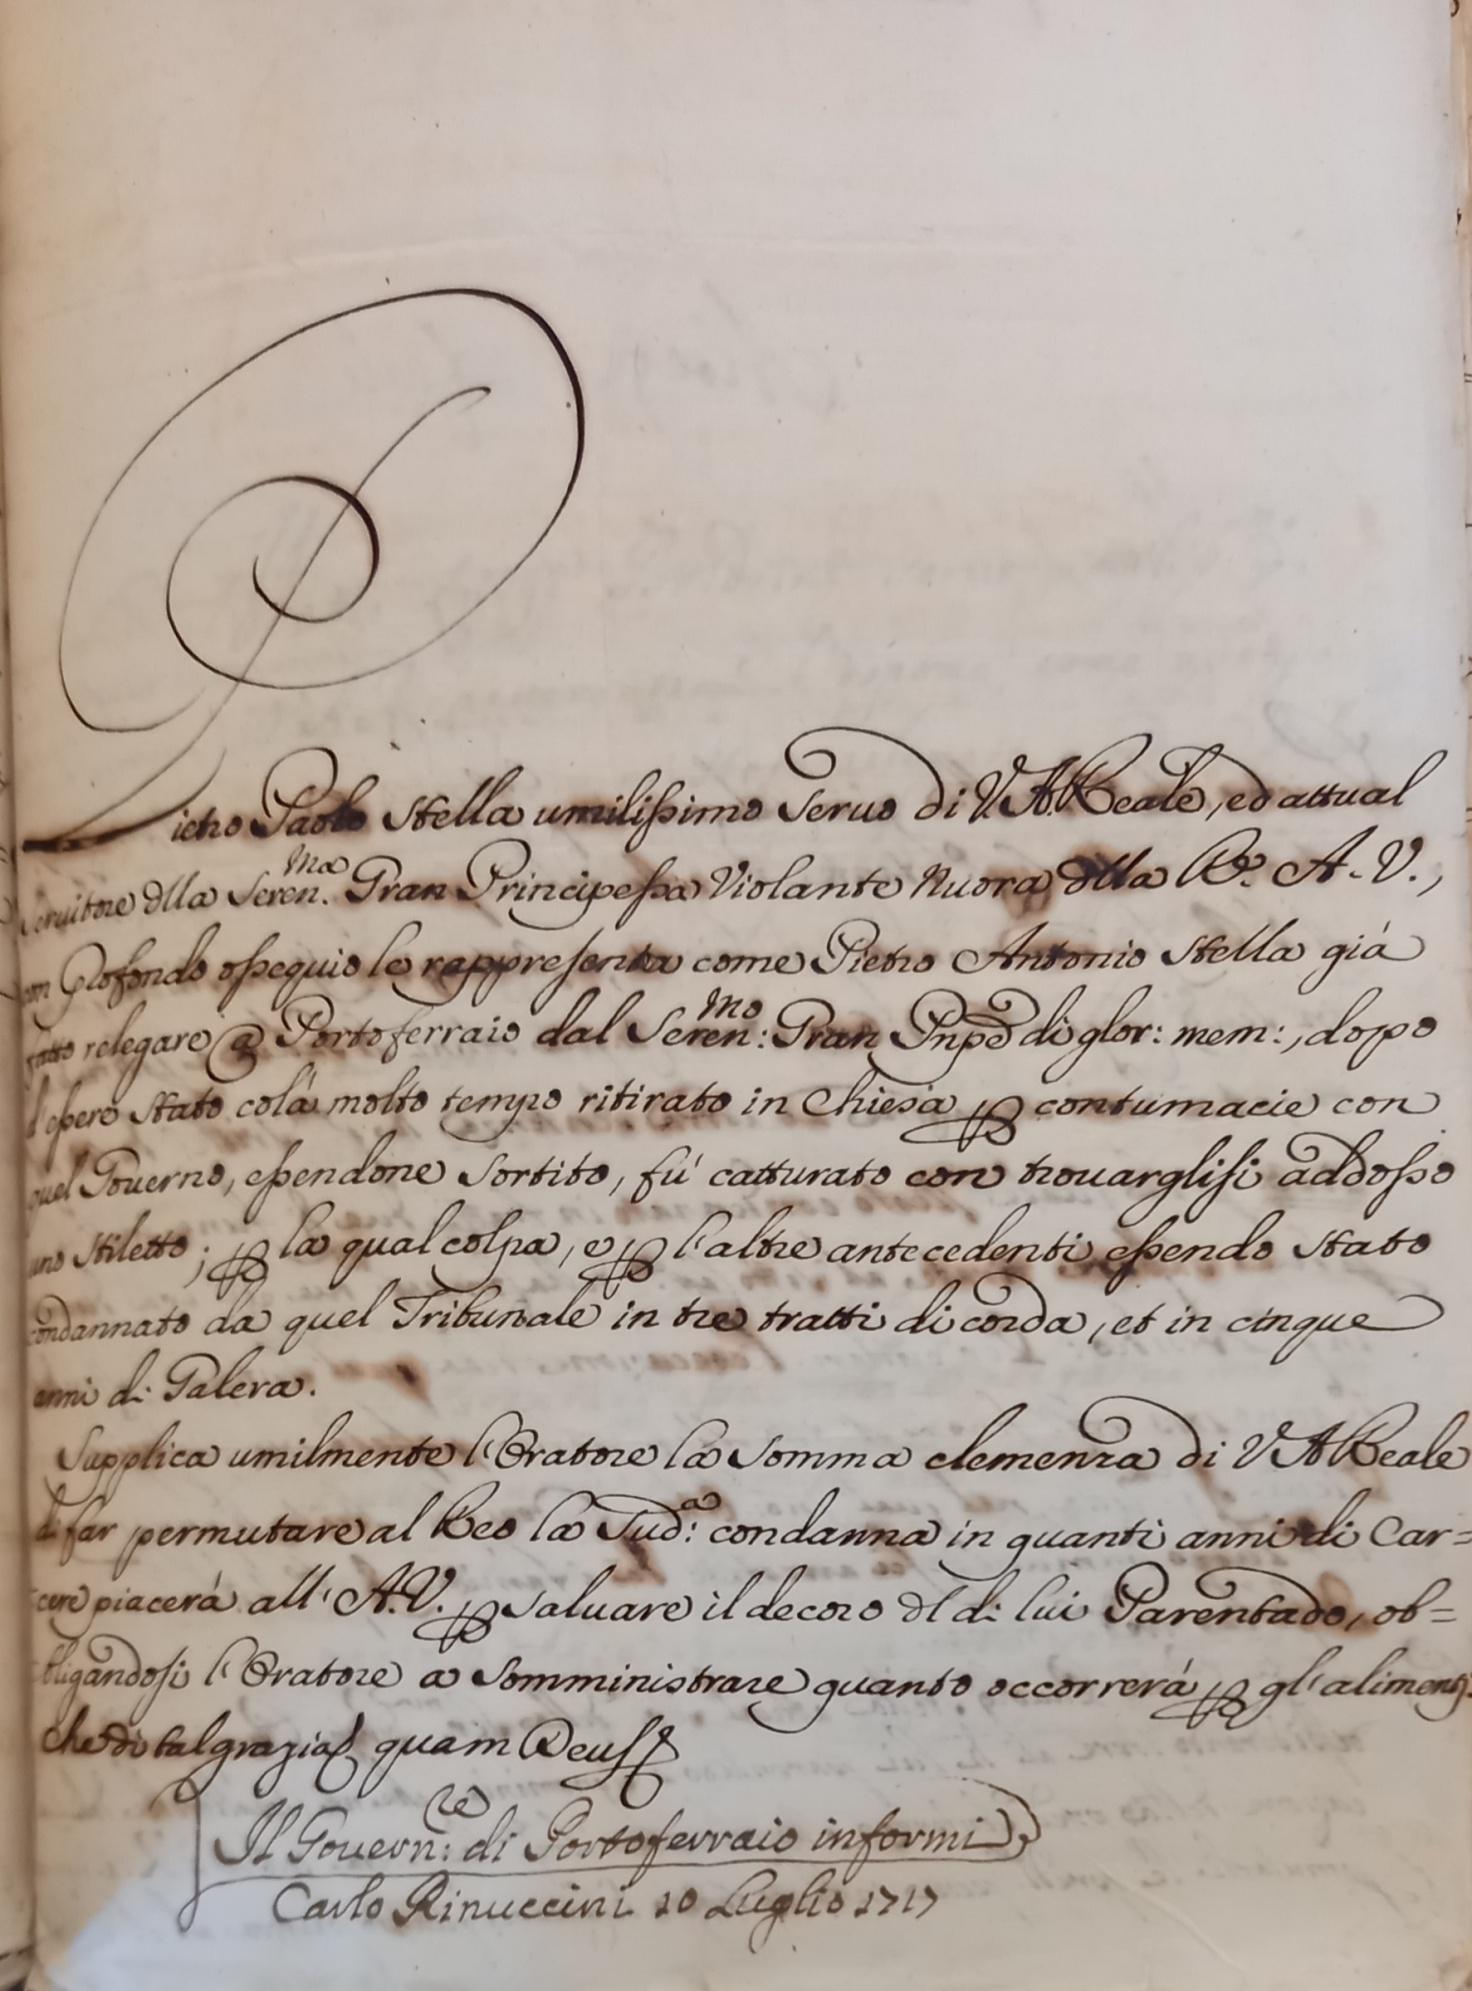 Pietro Paolo Stella umilissimo Seruo di V. A. Reale, ed attual
Seruitore dlla Seren.ma Gran Principessa Violante Nuora dlla R. A. V.,
con profondo ossequio le rappresenta come Pietro Antonio Stella già
fatto relegare a Portoferraio dal Seren:mo Gran Pnpe di glor: mem:, dopo
l'essere stato colà molto tempo ritirato in Chiesa p contumacie con
quel Gouerno, essendone sortito, fù catturato con trouarglisi addosso
uno Stiletto; p la qual colpa, e p l'altre antecedenti essendo stato
condannato da quel Tribunale in tre tratti di corda, et in cinque
anni di Galera.
Supplica umilmente l'Oratore la somma clemenza di V A Reale
di far permutare al Reo la Sud:a condanna in quanti anni di Car=
cere piacerà all'A.V. p saluare il decoro dl di lui Parentado, ob=
bligandosi l'Oratore a somministrare quanto occorrerà p gl'alimenti
che di tal grazia quam Deus
Il Gouern:re di Portoferraio informi
Carlo Rinuccini 10 Luglio 1717